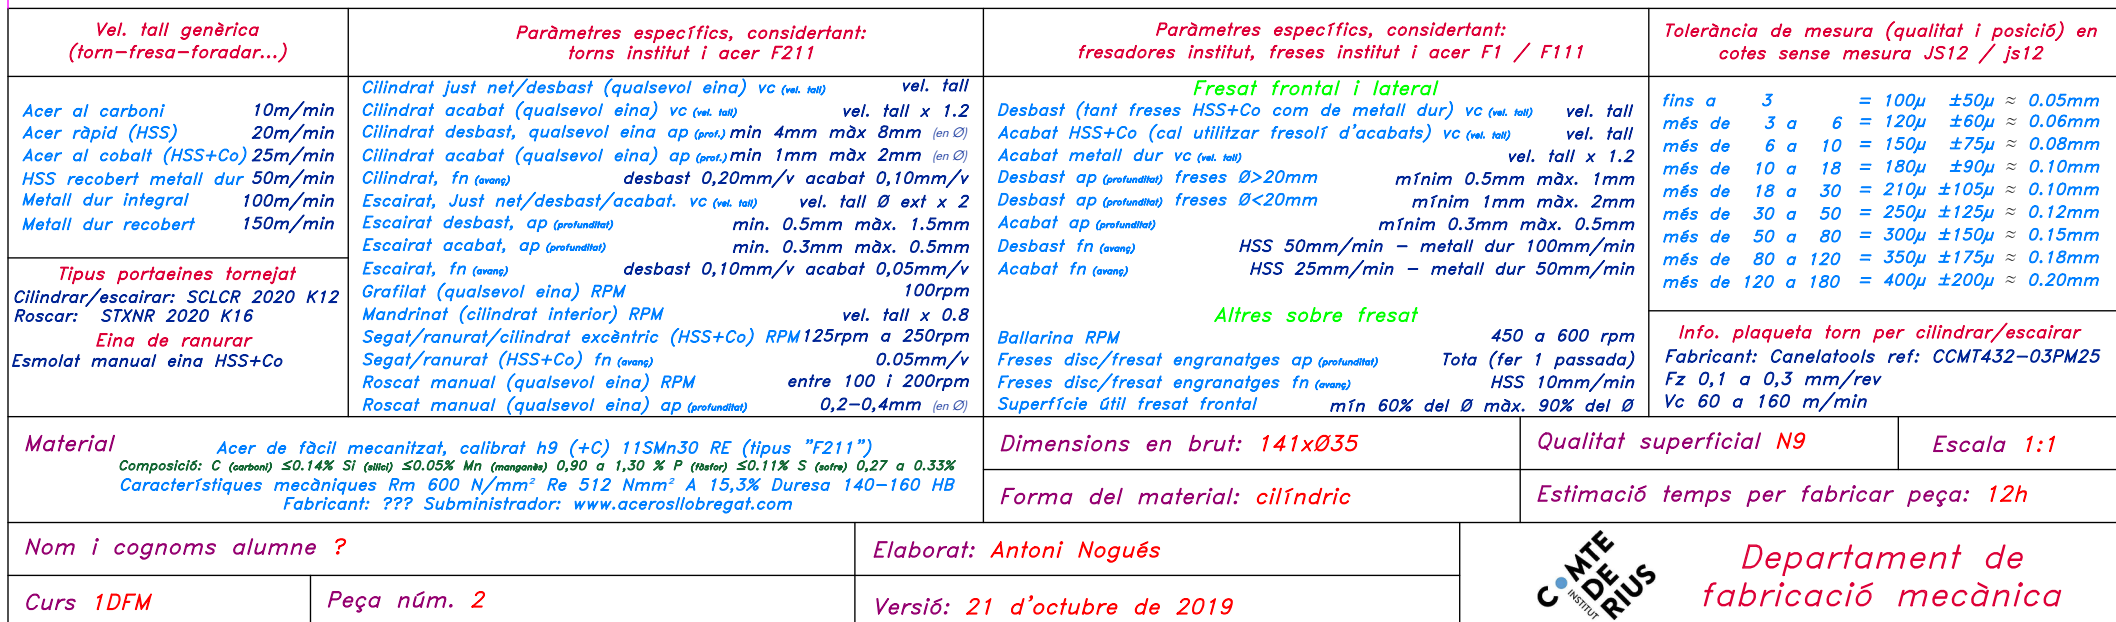 Vel. tall genèrica
(torn-fresa-foradar...)
Acer al carboni 10m/min
Acer ràpid (HSS) 20m/min
Acer al cobalt (HSS+Co) 25m/min
HSS recobert metall dur 50m/min
Metall dur integral 100m/min
Metall dur recobert 150m/min
Tipus portaeines tornejat
Cilindrar/escairar: SCLCR 2020 K12
Roscar: STXNR 2020 K16
Eina de ranurar
Esmolat manual eina HSS+Co
Paràmetres específics, considertant:
torns institut i acer F211
Cilindrat just net/desbast (qualsevol eina) vc (vel. tall) vel. tall
Cilindrat acabat (qualsevol eina) vc (vel. tall) vel. tall x 1.2
Cilindrat desbast, qualsevol eina ap (prof.) min 4mm màx 8mm (en Ø)
Cilindrat acabat (qualsevol eina) ap (prof.) min 1mm màx 2mm (en Ø)
Cilindrat, fn (avanç) desbast 0,20mm/v acabat 0,10mm/v
Escairat, Just net/desbast/acabat. vc (vel. tall) vel. tall Ø ext x 2
Escairat desbast, ap (profunditat) min. 0.5mm màx. 1.5mm
Escairat acabat, ap (profunditat) min. 0.3mm màx. 0.5mm
Escairat, fn (avanç) desbast 0,10mm/v acabat 0,05mm/v
Grafilat (qualsevol eina) RPM 100rpm
Mandrinat (cilindrat interior) RPM vel. tall x 0.8
Segat/ranurat/cilindrat excèntric (HSS+Co) RPM 125rpm a 250rpm
Segat/ranurat (HSS+Co) fn (avanç) 0.05mm/v
Roscat manual (qualsevol eina) RPM entre 100 i 200rpm
Roscat manual (qualsevol eina) ap (profunditat) 0,2-0,4mm (en Ø)
Paràmetres específics, considertant:
fresadores institut, freses institut i acer F1 / F111
Fresat frontal i lateral
Desbast (tant freses HSS+Co com de metall dur) vc (vel. tall) vel. tall
Acabat HSS+Co (cal utilitzar fresolí d'acabats) vc (vel. tall) vel. tall
Acabat metall dur vc (vel. tall) vel. tall x 1.2
Desbast ap (profunditat) freses Ø>20mm mínim 0.5mm màx. 1mm
Desbast ap (profunditat) freses Ø<20mm mínim 1mm màx. 2mm
Acabat ap (profunditat) mínim 0.3mm màx. 0.5mm
Desbast fn (avanç) HSS 50mm/min - metall dur 100mm/min
Acabat fn (avanç) HSS 25mm/min - metall dur 50mm/min
Altres sobre fresat
Ballarina RPM 450 a 600 rpm
Freses disc/fresat engranatges ap (profunditat) Tota (fer 1 passada)
Freses disc/fresat engranatges fn (avanç) HSS 10mm/min
Superfície útil fresat frontal mín 60% del Ø màx. 90% del Ø
Tolerància de mesura (qualitat i posició) en
cotes sense mesura JS12 / js12
fins a 3 = 100µ ±50µ ≈ 0.05mm
més de 3 a 6 = 120µ ±60µ ≈ 0.06mm
més de 6 a 10 = 150µ ±75µ ≈ 0.08mm
més de 10 a 18 = 180µ ±90µ ≈ 0.10mm
més de 18 a 30 = 210µ ±105µ ≈ 0.10mm
més de 30 a 50 = 250µ ±125µ ≈ 0.12mm
més de 50 a 80 = 300µ ±150µ ≈ 0.15mm
més de 80 a 120 = 350µ ±175µ ≈ 0.18mm
més de 120 a 180 = 400µ ±200µ ≈ 0.20mm
Info. plaqueta torn per cilindrar/escairar
Fabricant: Canelatools ref: CCMT432-03PM25
Fz 0,1 a 0,3 mm/rev
Vc 60 a 160 m/min
Material Acer de fàcil mecanitzat, calibrat h9 (+C) 11SMn30 RE (tipus "F211")
Composició: C (carboni) ≤0.14% Si (silici) ≤0.05% Mn (manganès) 0,90 a 1,30 % P (fòsfor) ≤0.11% S (sofre) 0,27 a 0.33%
Característiques mecàniques Rm 600 N/mm² Re 512 Nmm² A 15,3% Duresa 140-160 HB
Fabricant: ??? Subministrador: www.acerosllobregat.com
Dimensions en brut: 141xØ35
Forma del material: cilíndric
Qualitat superficial N9
Escala 1:1
Estimació temps per fabricar peça: 12h
Nom i cognoms alumne ?
Curs 1DFM
Peça núm. 2
Elaborat: Antoni Nogués
Versió: 21 d'octubre de 2019
COMTE
DE
RIUS
INSTITUT
Departament de
fabricació mecànica